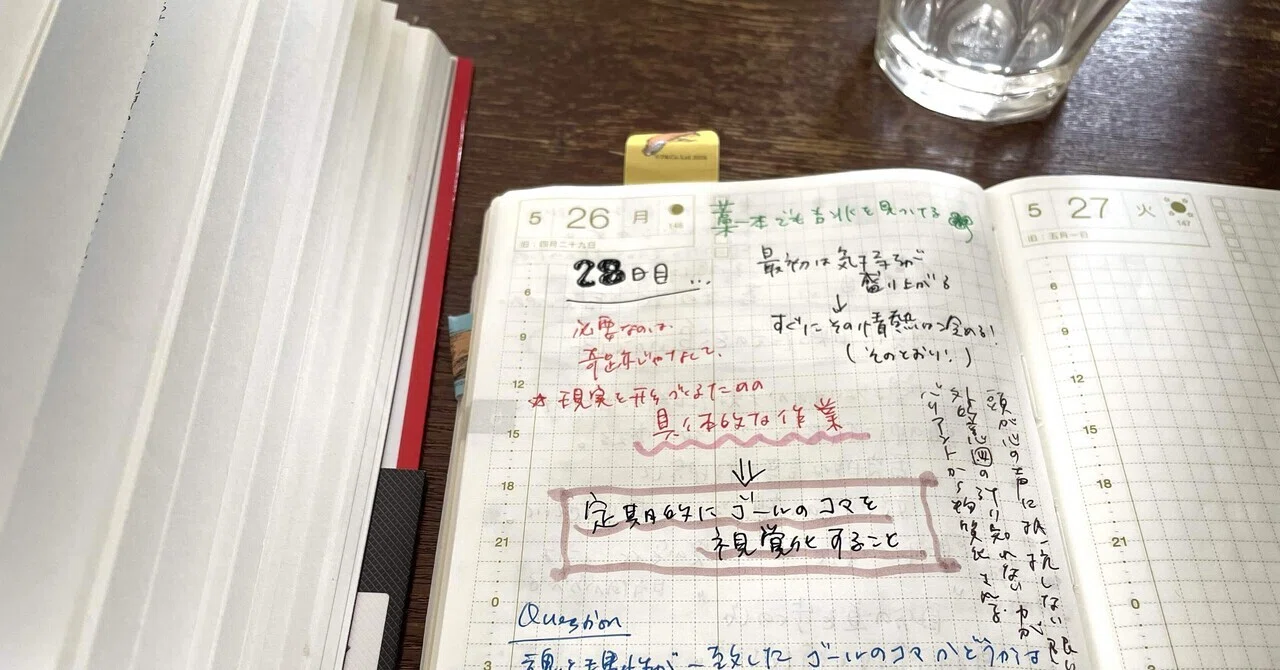 5 26 月
146
旧:四月二十九日
藁一本でも吉兆を見つてる
28日目...
最初は気持ちが
盛り上がる
↓
すぐにその情熱は冷める!
(そのとおり!)
必要なのは
奇跡じゃなくて、
☆現実を形づくるための
具体的な作業
⇓
定期的にゴールのコマを
視覚化すること
頭が心の声に抵抗しない限
図の計り知れない力が
から物質化される。
Question
魂と理性が一致したゴールのコマかどうかは
6
9
12
15
18
21
0
3
5 27 火
147
旧:五月一日
6
9
12
15
18
21
0